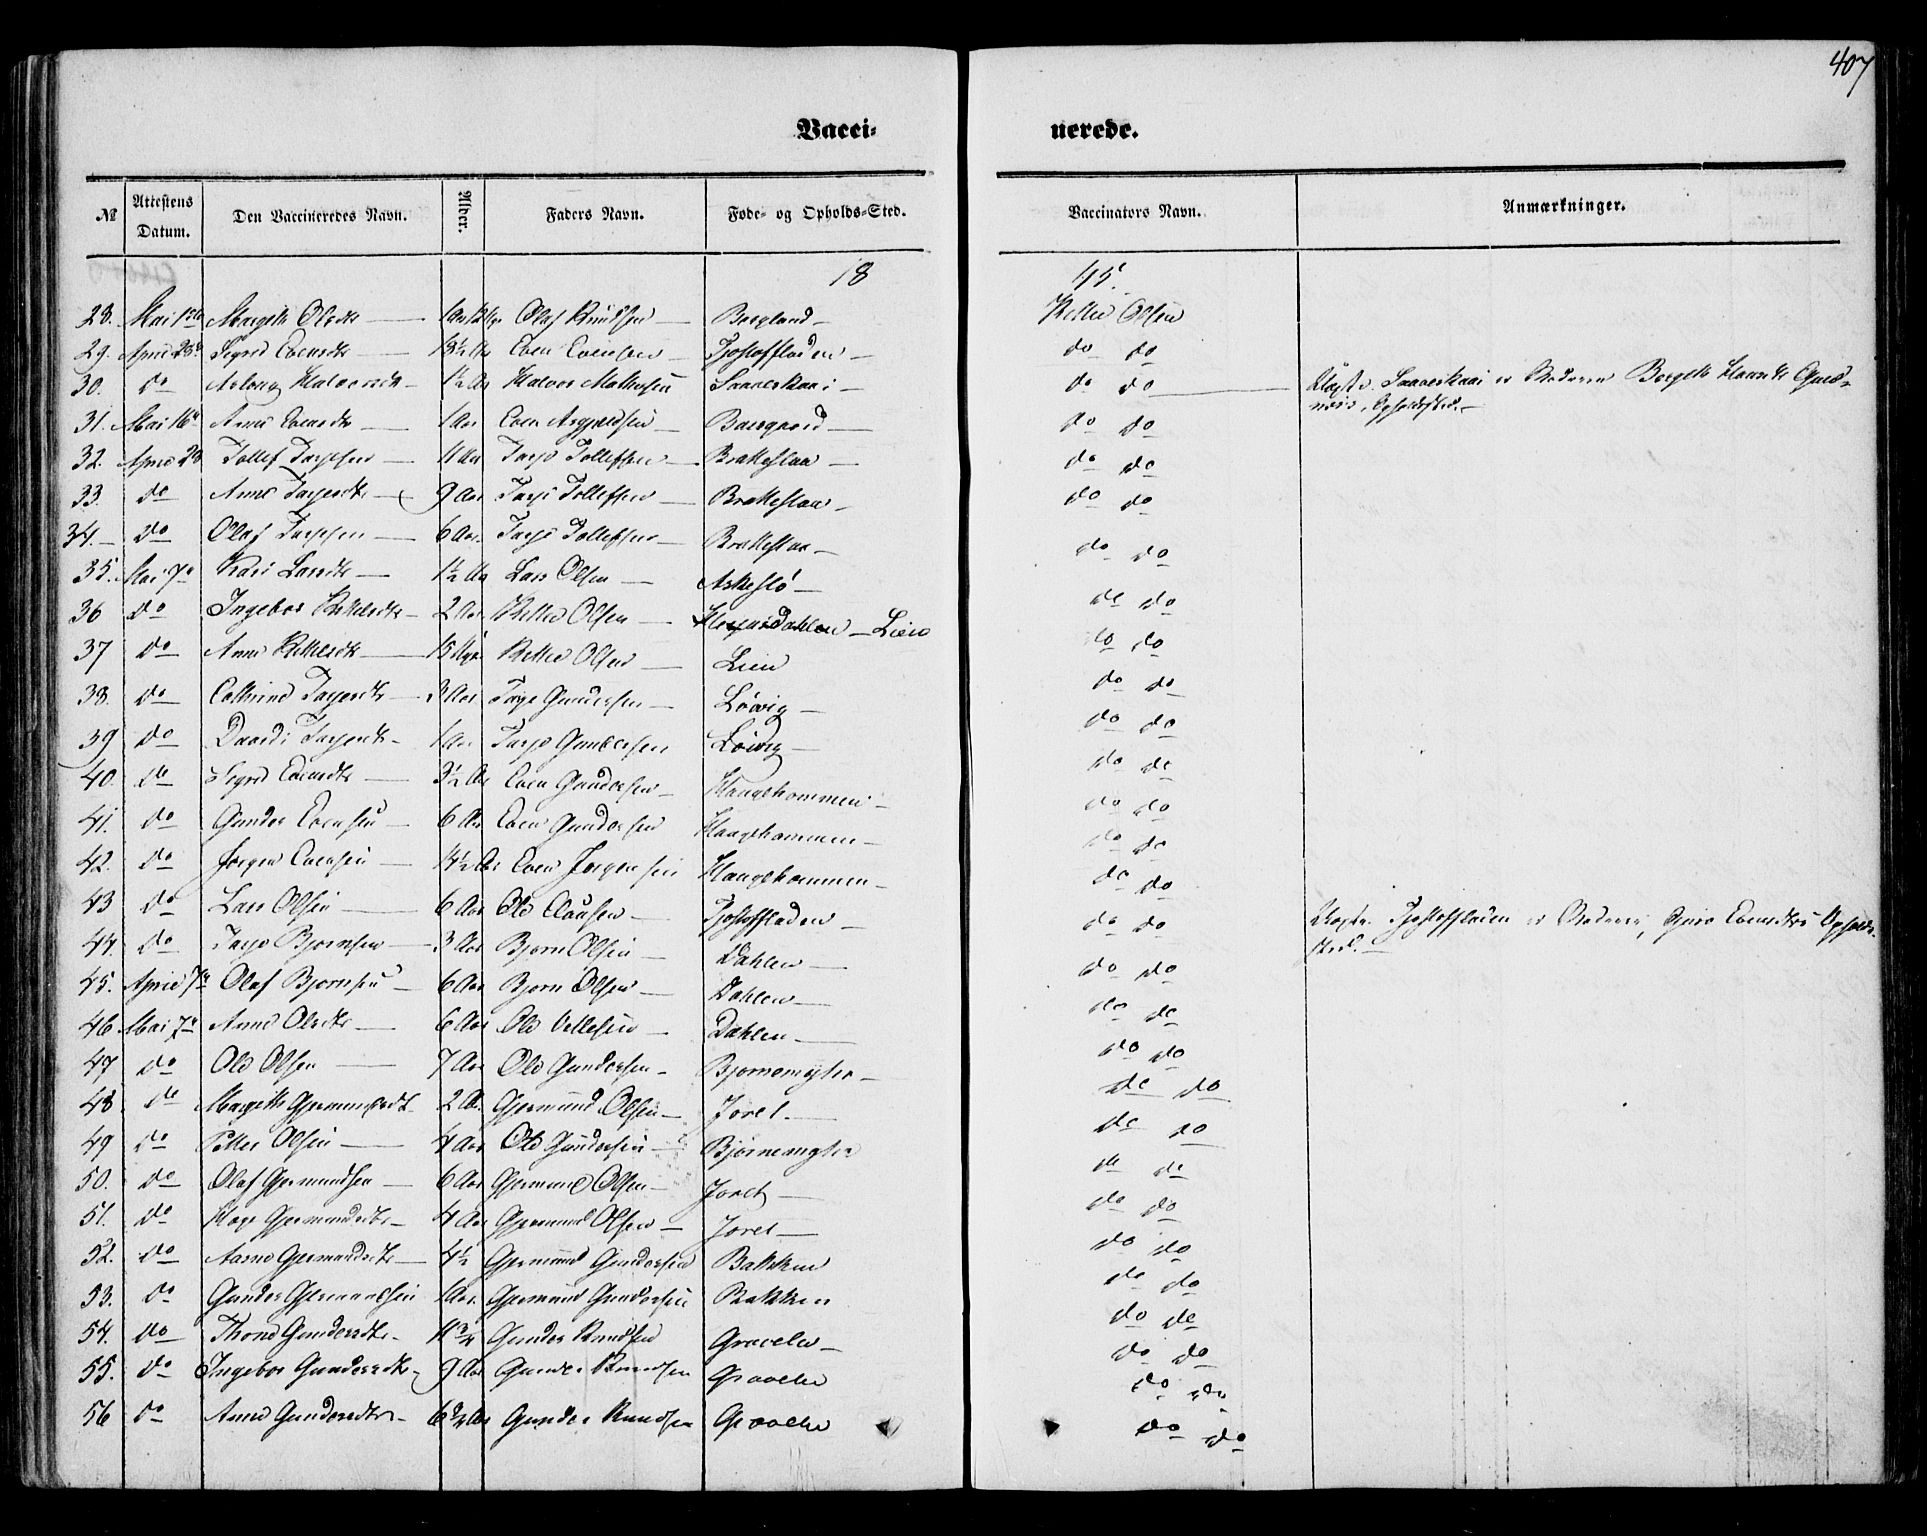 407
Vacci= nerede.
№ Attestens Datum. Den Vaccineredes Navn. Alder. Faders Navn. Føde- og Opholds-Sted. Vaccinators Navn. Anmærkninger.
18 45.
28. Mai 1ste Margith Olsdtr 1 Aar Olaf Knudsen Bergland Kittel Olsen
29. April 23de Sigrid Evensdtr 13½ Aar Even Evensen Tjostoffladen do do
30. do Aslaug Halvorsdtr 1½ Aar Halvor Mathisen Saaveskaai do do Saaveskaai er Moderen Bergith
Opholdssted.
31. Mai 16de Anne Evensdtr 1 Aar Even Baasgaard do do
32. April 23 Tollef Tarjesen 11 Aar Tarje Tollefsen Brækkeslaa do do
33. do Anne Tarjesdtr 9 Aar Tarje Tollefsen Brækkeslaa do do
34. do Olaf Tarjesen 6 Aar Tarje Tollefsen Brækkeslaa do do
35. Mai 7de Kari Larsdtr 1½ Aar Lars Olsen Askeslå do do
36 do Ingebor Kittelsdtr 2 Aar Kittel Olsen Lien do do
37 do Anne Kittelsdtr 15 Kittel Olsen Lien do do
38. do Cathrine Tarjesdtr 3 Aar Tarje Gundersen Løvig do do
39 do Tarjesdtr 1 Aar Tarje Gundersen Løvig do do
40. do Sigrid Evensdtr 3½ Aar Even Gundersen Haugehommen do do
41. do Gunder Evensen 6 Aar Even Gundersen Haugehommen do do
42. do Jørgen Evensen 14½ Aar Even Jørgensen Haugehommen do do
43 do Lars Olsen 6 Aar Ole Clausen Tjostoffladen do do Tjostoffladen er Moderen, Evensdtrs Opholds
sted.
44. do Tarje Bjørnsen 3 Aar Bjørn Olsen Dahlen do do
45. April 7de Olaf Bjørnsen 6 Aar Bjørn Olsen Dahlen do do
46 Mai 7de Anne Olsdtr 6 Aar Ole Dahlen do do
47 do Ole Olsen 7 Aar Ole Gundersen Bjørnemyhr do do
48 do Margith Gjermundsdtr 2 Aar Gjermund Olsen Joret do do
49 do Petter Olsen 4 Aar Ole Gundersen do do
50. do Olaf Gjermundsen 6 Aar Gjermund Olsen Joret do do
51. do Gjermundsdtr 4 Aar Gjermund Olsen Joret do do
52. do Gjermundsdtr 4½ Gjermund Gundersen Bakken do do
53. do Gunder Gjermundsen 1 Aar Gjermund Gundersen Bakken do do
54. do Thone Gundersdtr 11¾ Gunder Knudsen Gravelie do do
55. do Ingebor Gundersdtr 9 Aar Gunder Knudsen Gravelie do do
56 do Anne Gundersdtr 6 Aar Gunder Knudsen Gravelie do do